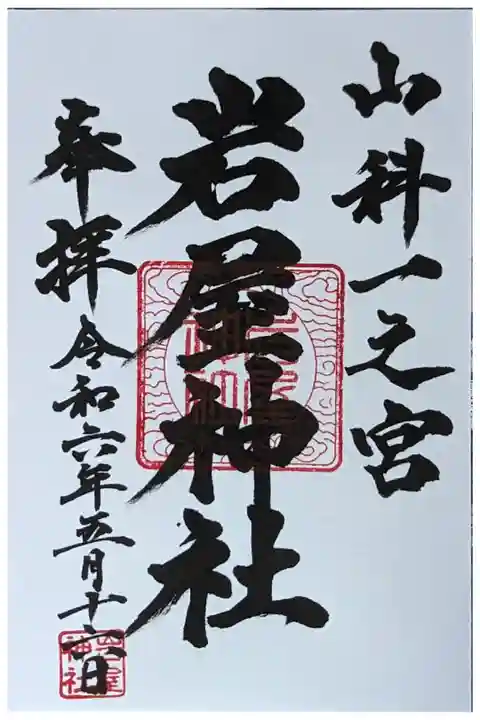 山科一之宮
岩屋神社
奉拝 令和六年五月十六日
岩屋
神社